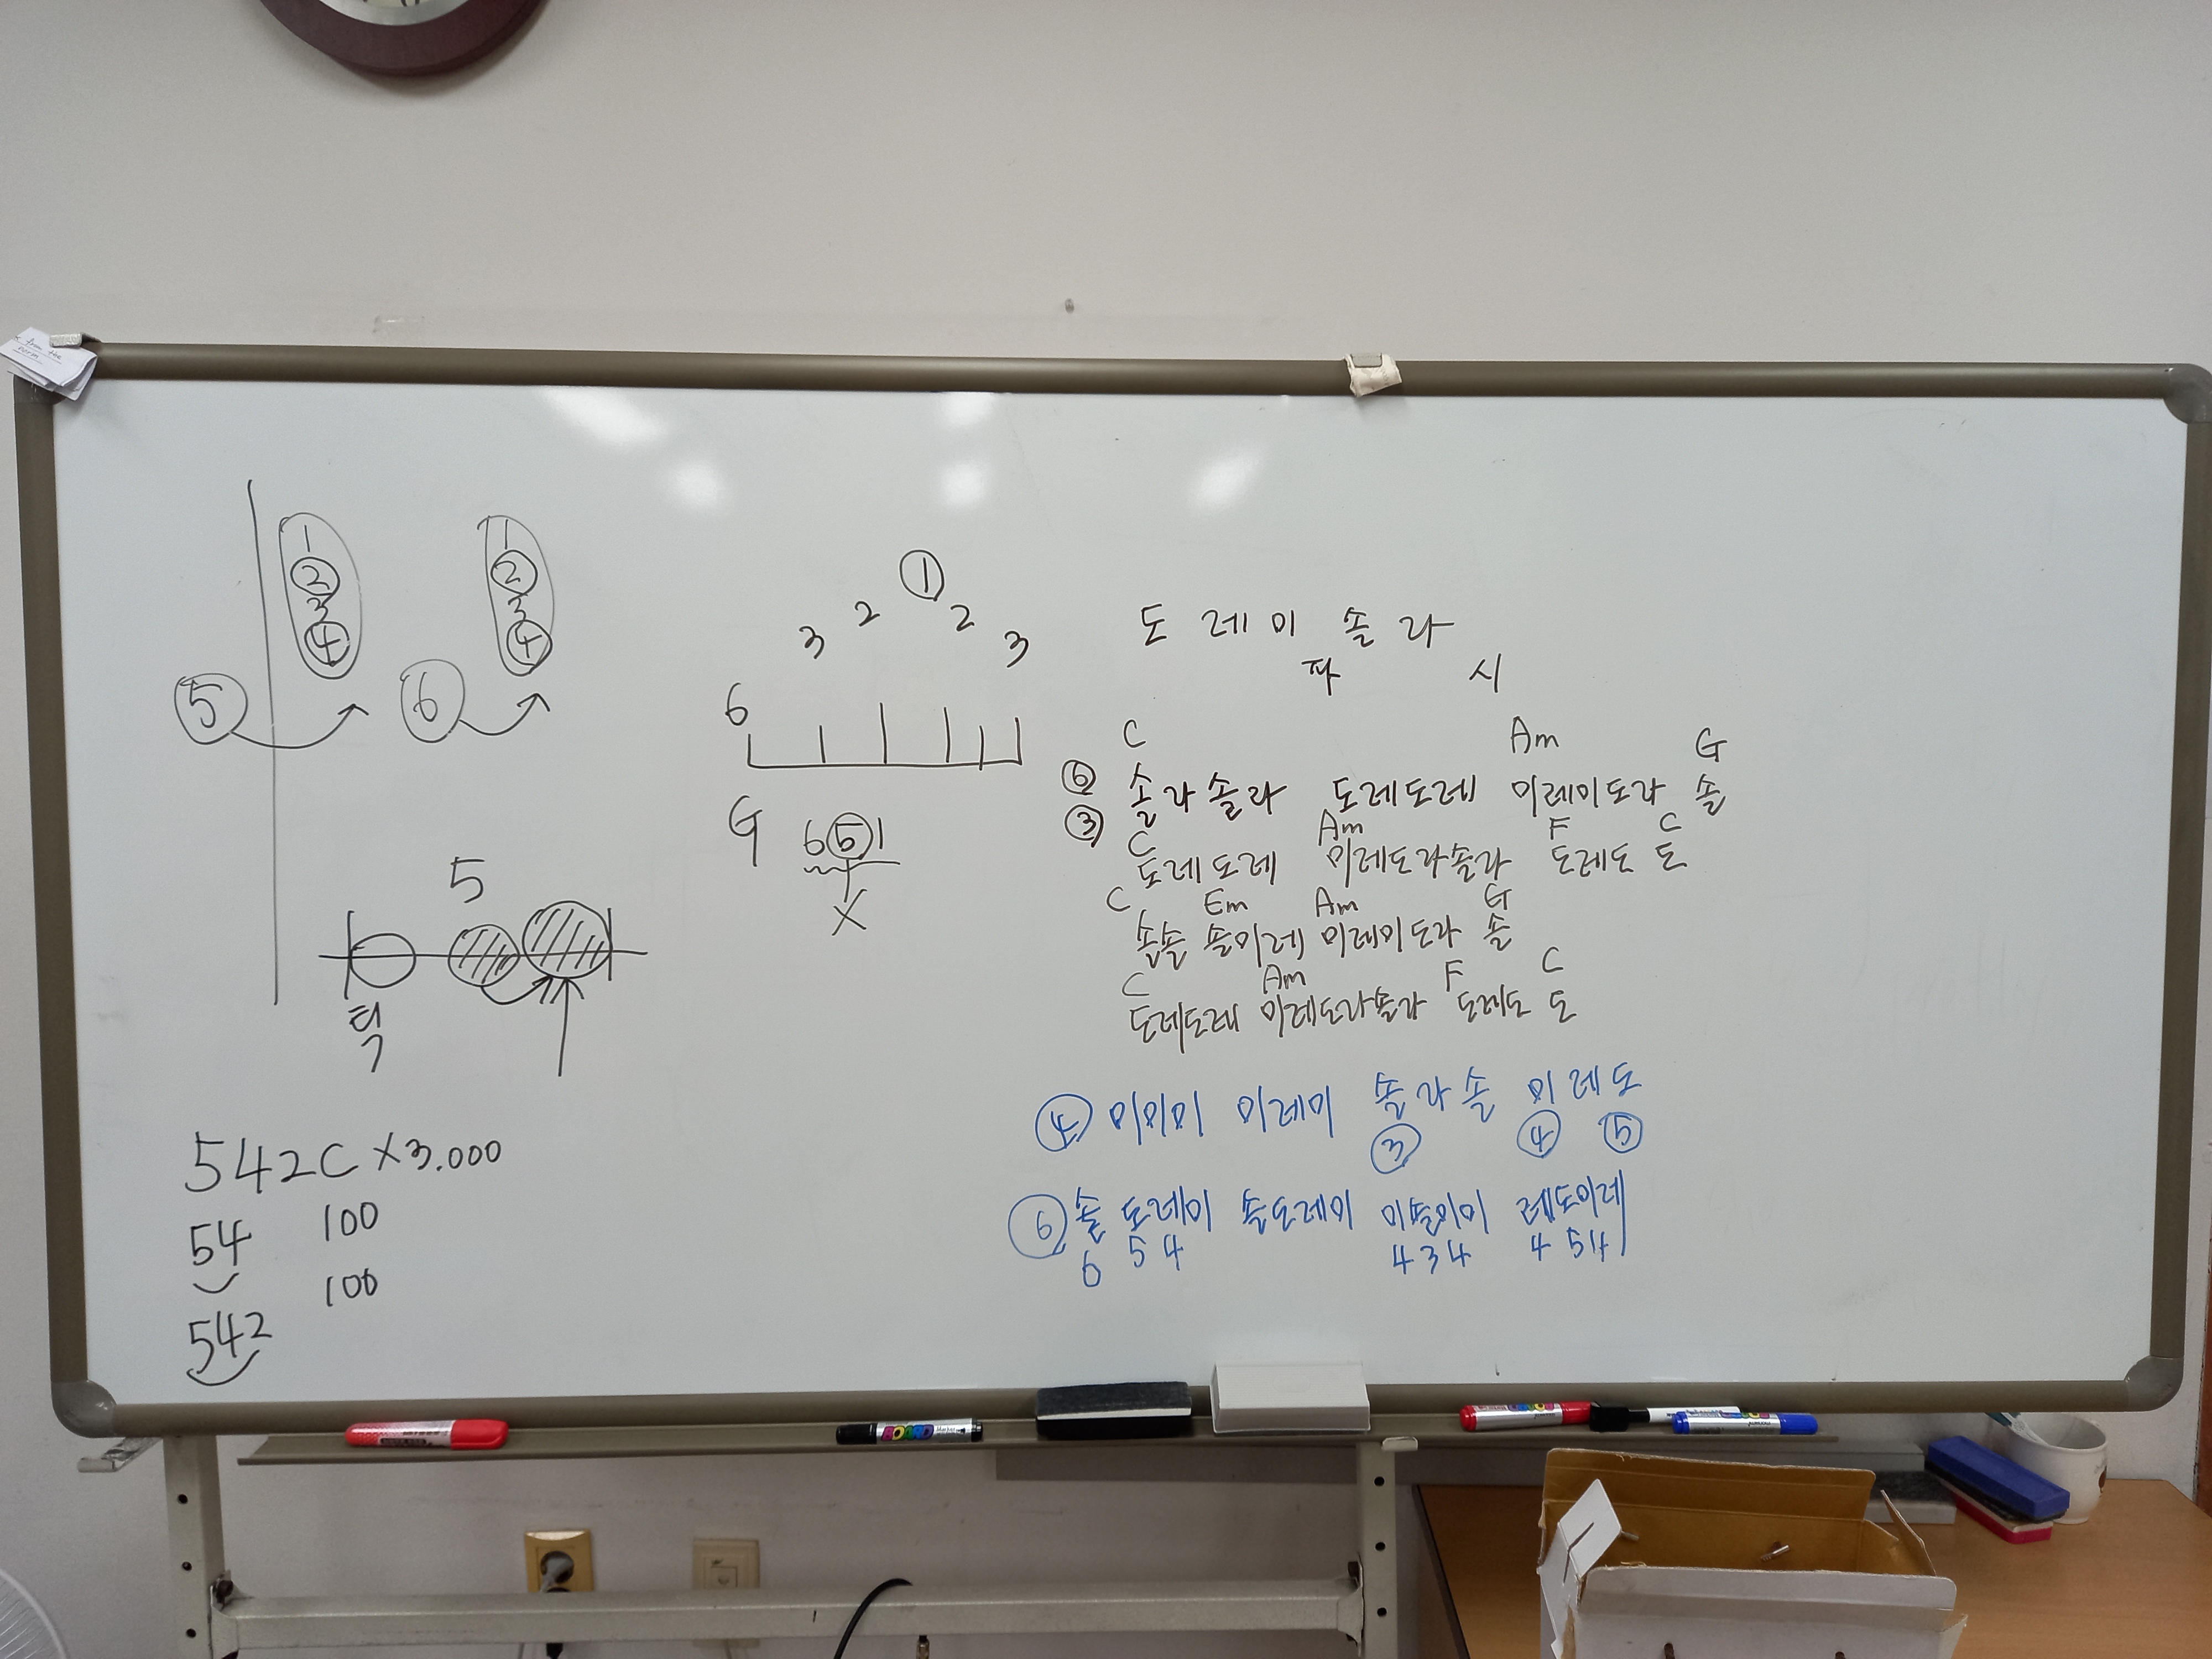 from the
1
②
3
④
⑤
1
②
3
④
⑥
5
틱
542C X3.000
54 100
100
542
①
3 2 2 3
6
G 6⑤1
X
도 레 미 솔 라
파 시
C Am G
⑥ 솔라솔라 도레도레 미레미도라 솔
③
C Am F C
도레도레 미레도라솔라 도레도 도
C Em Am G
솔솔 솔미레 미레미도라 솔
C Am F C
도레도레 미레도라솔라 도레도 도
④ 미미미 미레미 솔라솔 미레도
③ ④ ⑤
⑥ 솔 도레미 솔도레미 미솔미미 레도미레
6 5 4 4 3 4 4 5 4
BOARD Marker